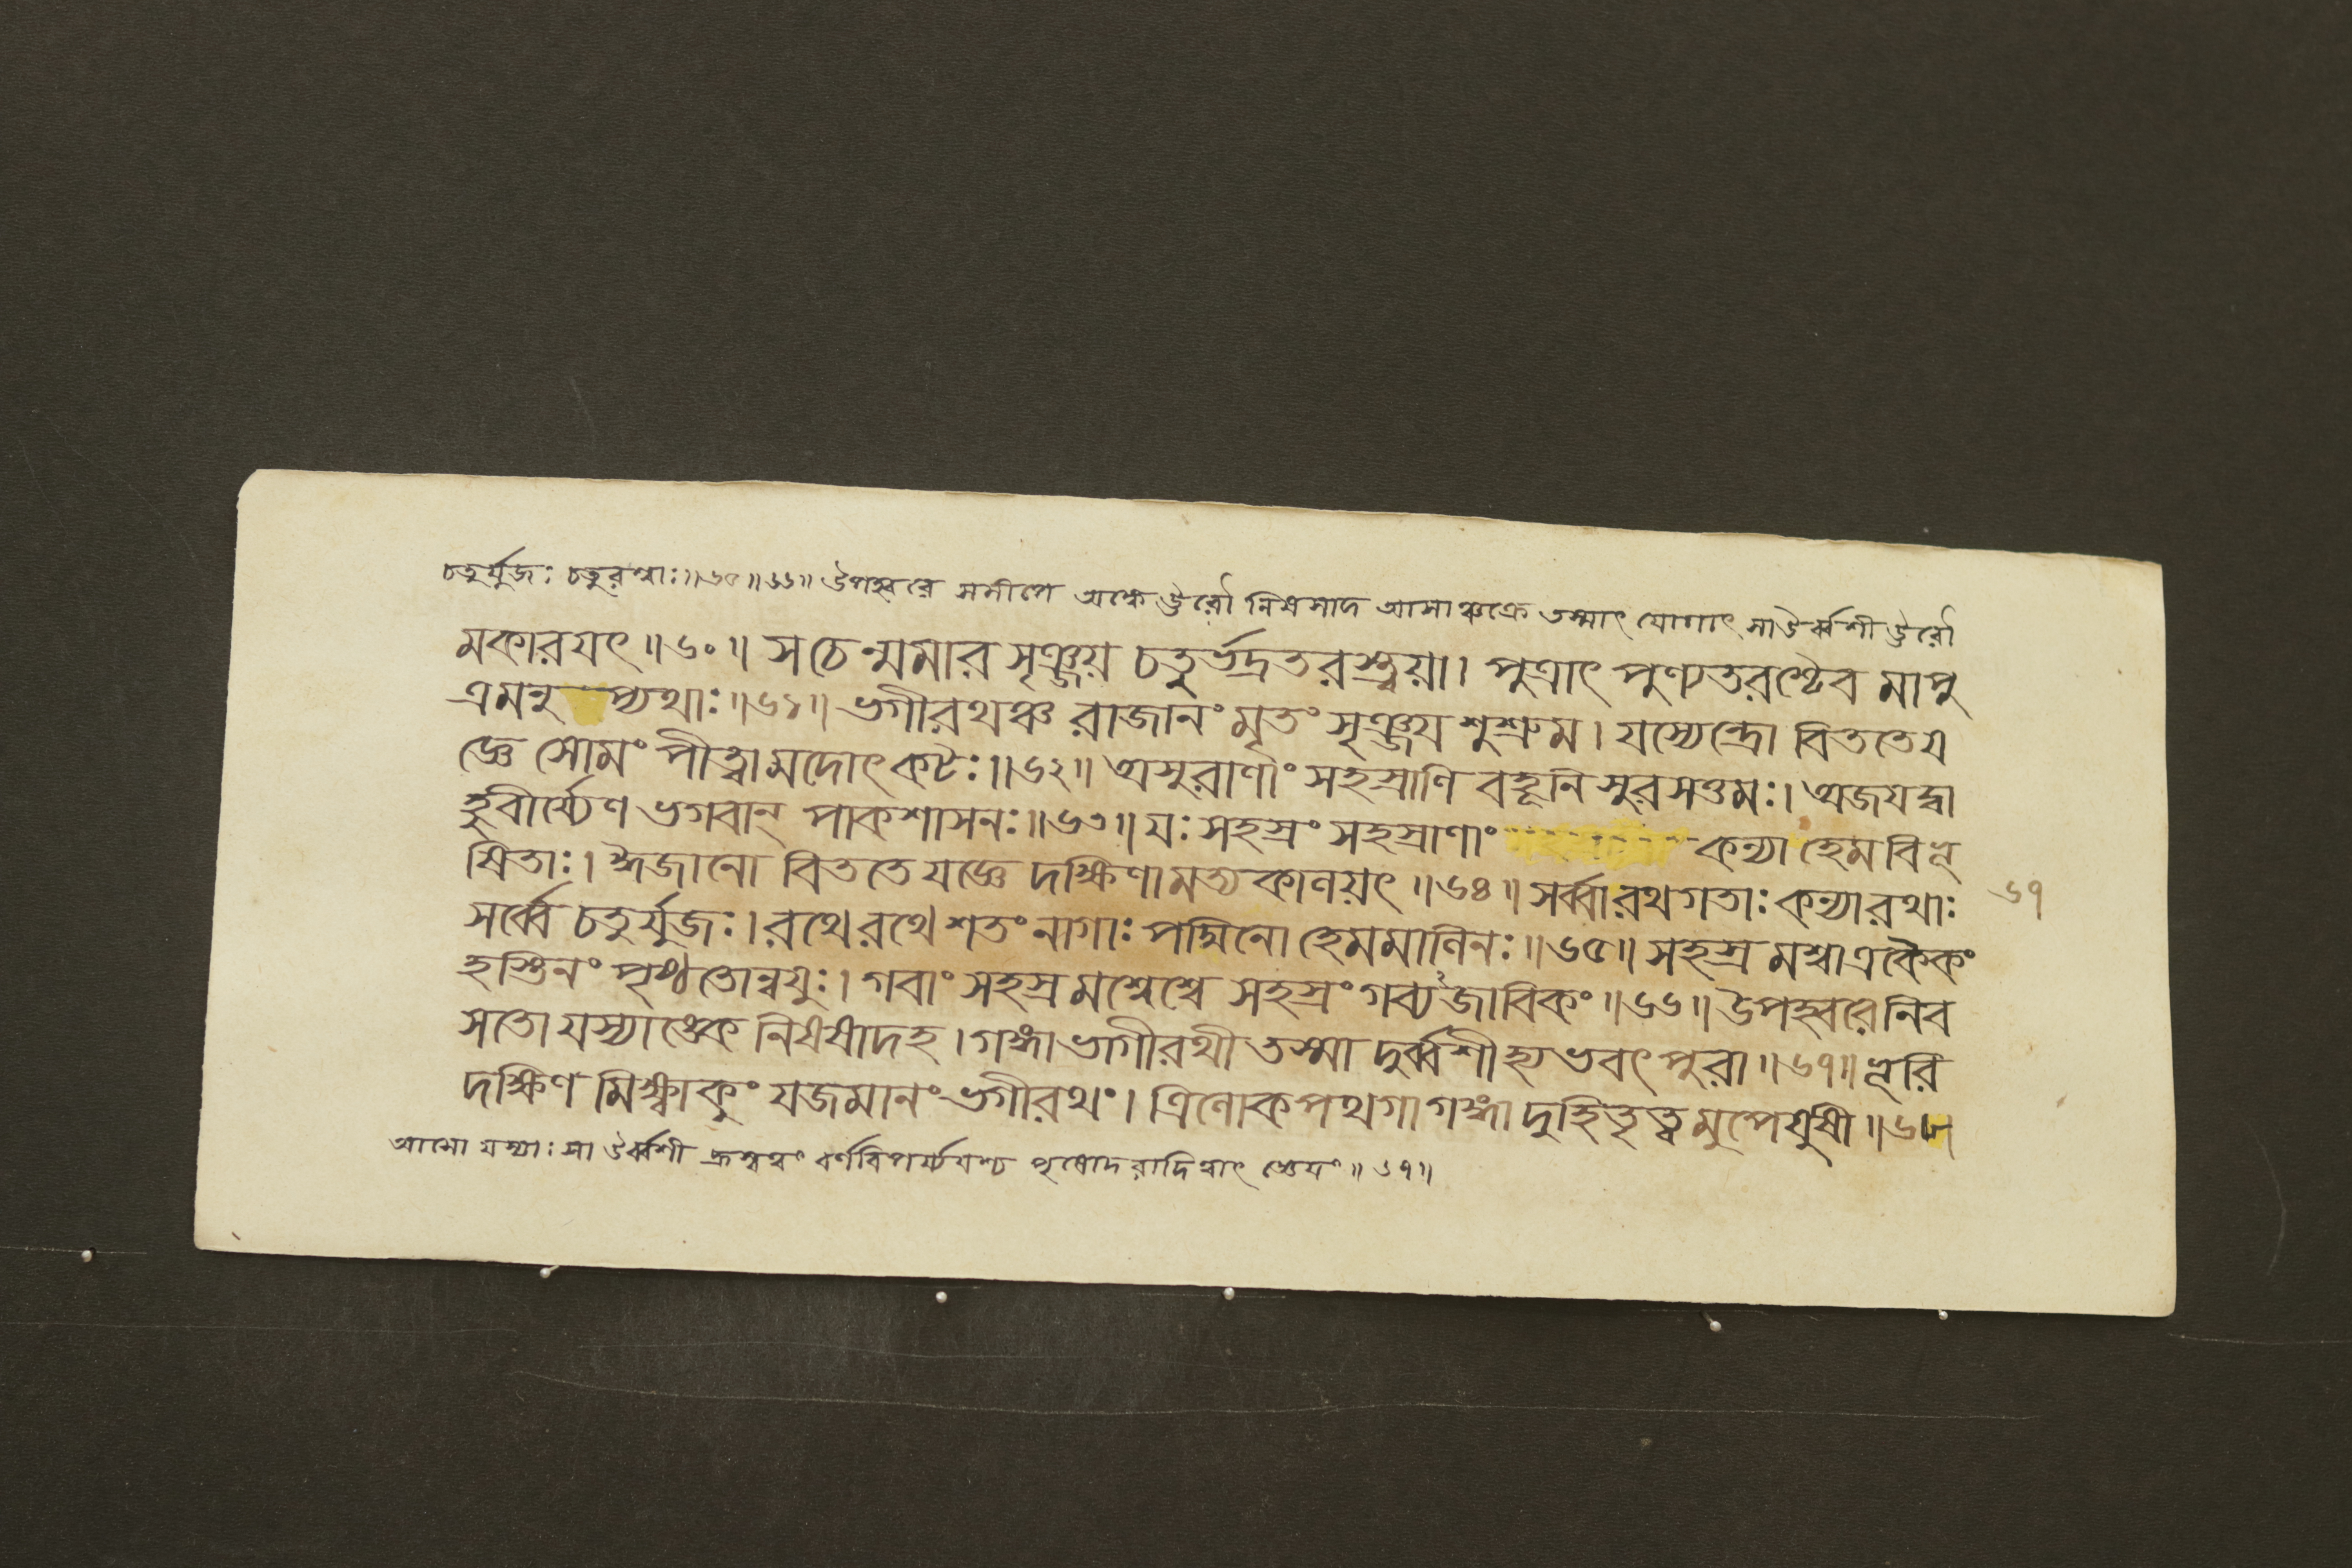 চতুর্যুজঃ চতুরশ্বাঃ॥৬৫॥৬৬॥ উপহ্বরে সমীপে অঙ্কে ঊরৌ নিষসাদ আসাঞ্চক্রে তস্মাৎ যোগাৎ সা ঊর্ব্বশী ঊরৌ
মকারয়ৎ॥৬০॥ স চেন্মমার সৃঞ্জয় চতুর্ভদ্রতরস্ত্বয়া। পুত্রাৎ পুণ্যতরশ্চৈব মাপু
ত্রমনু তপ্যথাঃ॥৬১॥ ভগীরথঞ্চ রাজানং মৃতং সৃঞ্জয় শুশ্রুম। যস্যেন্দ্রো বিততে য
জ্ঞে সোমং পীত্বা মদোৎকটঃ॥৬২॥ অসুরাণাং সহস্রাণি বহূনি সুরসত্তমঃ। অজয়দ্বা
হুবীর্য্যেণ ভগবান্ পাকশাসনঃ॥৬৩॥ যঃ সহস্রং সহস্রাণাং কন্যা হেমবিভূ
ষিতাঃ। ঈজানো বিততে যজ্ঞে দক্ষিণামত্যকালয়ৎ॥৬৪॥ সর্ব্বা রথগতাঃ কন্যা রথাঃ
৬৭
সর্ব্বে চতুর্যুজঃ। রথে রথে শতং নাগাঃ পদ্মিনো হেমমালিনঃ॥৬৫॥ সহস্রমশ্বা একৈকং
হস্তিনং পৃষ্ঠতোন্বয়ুঃ। গবাং সহস্রমশ্বেশ্বে সহস্রং গব্যজাবিকং॥৬৬॥ উপহ্বরে নিব
সতো যস্যাঙ্কে নিষষাদহ। গঙ্গা ভাগীরথী তস্মাদুর্ব্বশী হ্যভবৎ পুরা॥৬৭॥ ভূরি
দক্ষিণমিক্ষ্বাকুং যজমানং ভগীরথং। ত্রিলোকপথগা গঙ্গা দুহিতৃত্বমুপেয়ুষী॥৬৮॥
আসো যস্যাঃ সা ঊর্ব্বশী হ্রস্বত্বং বর্ণবিপর্য্যয়শ্চ পৃষোদরাদিত্বাৎ জ্ঞেয়ং॥৬৭॥